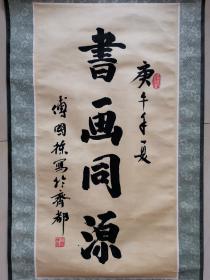 庚午年夏
書画同源
傅国栋写於齊都